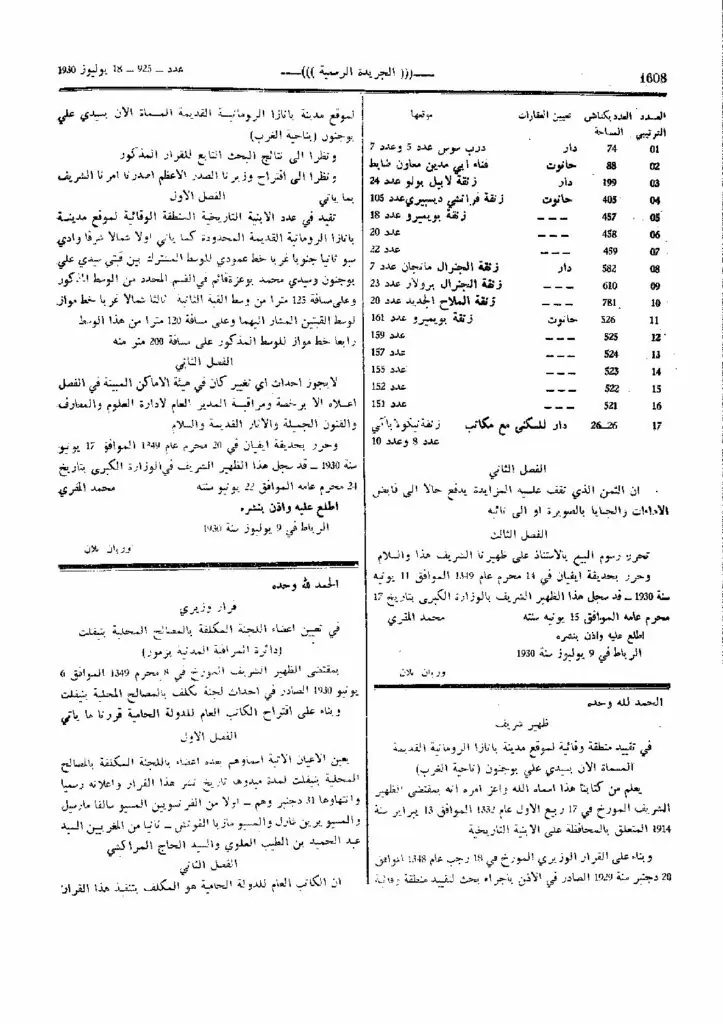 1608
—((( الجريدة الرسمية )))—
عدد — 925 — 18 يوليوز 1930
العدد الترتيبي العدد بكناش المساحة تعيين العقارات موقعها
01 74 دار درب سوس عدد 5 وعدد 7
02 88 حانوت فناء ابي مدين معاون ضابط
03 199 دار زنقة لابيل بولو عدد 24
04 405 حانوت زنقة فرانشي ديسبيري عدد 105
05 457 — — — زنقة بويميرو عدد 18
06 458 — — — عدد 20
07 459 — — — عدد 22
08 582 دار زنقة الجنرال مانجان عدد 7
09 610 — — — زنقة الجنرال برولار عدد 23
10 781 — — — زنقة الملاح الجديد عدد 20
11 526 حانوت زنقة بويميرو عدد 161
12 525 — — — عدد 159
13 524 — — — عدد 157
14 523 — — — عدد 155
15 522 — — — عدد 152
16 521 — — — عدد 151
17 26—26 دار للسكنى مع مكاتب زنقة نيكولا باكي
عدد 8 وعدد 10
الفصل الثاني
ان الثمن الذي تقف عليه المزايدة يدفع حالا الى قابض
الاداءات والجبايا بالصويرة او الى نائبه
الفصل الثالث
تحرر رسوم البيع بالاستناد على ظهيرنا الشريف هذا والسلام
وحرر بحديقة ايفيان في 14 محرم عام 1349 الموافق 11 يونيه
سنة 1930 — قد سجل هذا الظهير الشريف بالوزارة الكبرى بتاريخ 17
محرم عامه الموافق 15 يونيه سنته محمد المقري
اطلع عليه واذن بنشره
الرباط في 9 يوليوز سنة 1930
وربان بلان
الحمد لله وحده
ظهير شريف
في تقييد منطقة وقائية لموقع مدينة بانازا الرومانية القديمة
المسماة الان بسيدي علي بوجنون (ناحية الغرب)
يعلم من كتابنا هذا اسماه الله واعز امره انه بمقتضى الظهير
الشريف المورخ في 17 ربيع الاول عام 1332 الموافق 13 يبراير سنة
1914 المتعلق بالمحافظة على الابنية التاريخية
وبناء على القرار الوزيري المورخ في 18 رجب عام 1348 الموافق
20 دجنبر سنة 1929 الصادر في الاذن باجراء بحث لتقييد منطقة وقائية
لموقع مدينة بانازا الرومانية القديمة المسماة الان بسيدي علي
بوجنون (بناحية الغرب)
ونظرا الى نتائج البحث التابع للقرار المذكور
ونظرا الى اقتراح وزيرنا الصدر الاعظم اصدرنا امرنا الشريف
بما ياتي الفصل الاول
تقيد في عدد الابنية التاريخية المنطقة الوقائية لموقع مدينة
بانازا الرومانية القديمة المحدودة كما ياتي اولا شمالا شرقا وادي
سبو ثانيا جنوبا غربا خط عمودي للوسط المشترك بين قبتي سيدي علي
بوجنون وسيدي محمد بوعزة قائم في القسم المحدد من الوسط المذكور
وعلى مسافة 125 مترا من وسط القبة الثانية ثالثا شمالا غربا خط مواز
لوسط القبتين المشار اليهما وعلى مسافة 120 مترا من هذا الوسط
رابعا خط مواز للوسط المذكور على مسافة 200 متر منه
الفصل الثاني
لا يجوز احداث اي تغيير كان في هيئة الاماكن المبينة في الفصل
اعلاه الا برخصة ومراقبة المدير العام لادارة العلوم والمعارف
والفنون الجميلة والاثار القديمة والسلام
وحرر بحديقة ايفيان في 20 محرم عام 1349 الموافق 17 يونيو
سنة 1930 — قد سجل هذا الظهير الشريف في الوزارة الكبرى بتاريخ
24 محرم عامه الموافق 22 يونيو سنته محمد المقري
اطلع عليه واذن بنشره
الرباط في 9 يوليوز سنة 1930
وربان بلان
الحمد لله وحده
قرار وزيري
في تعيين اعضاء اللجنة المكلفة بالمصالح المحلية بتيفلت
(دائرة المراقبة المدنية بزمور)
بمقتضى الظهير الشريف المورخ في 8 محرم 1349 الموافق 6
يونيو 1930 الصادر في احداث لجنة تكلف بالمصالح المحلية بتيفلت
وبناء على اقتراح الكاتب العام للدولة الحامية قررنا ما ياتي
الفصل الاول
يعين الاعيان الاتية اسماوهم بعده اعضاء باللجنة المكلفة بالمصالح
المحلية بتيفلت لمدة مبدوها تاريخ نشر هذا القرار واعلانه رسميا
وانتهاوها 31 دجنبر وهم — اولا من الفرنسويين المسيو سالفا مارسيل
والمسيو بربن شارل والمسيو ماريا الفونس — ثانيا من المغربيين السيد
عبد الحميد بن الطيب العلوي والسيد الحاج المراكشي
الفصل الثاني
ان الكاتب العام للدولة الحامية هو المكلف بتنفيذ هذا القرار